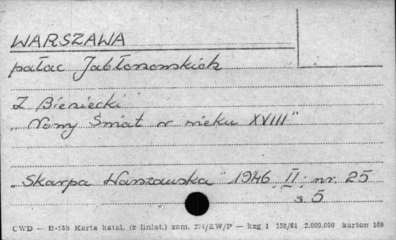 WARSZAWA
pałac Jabłonowskich
Z Bieniecki
"Nowy Świat w wieku XVIII"
"Skarpa Warszawska" 1946 II. nr. 25
s. 5
CWD — D-13b Karta katal. (z liniat.) zam. 274/ZW/P — kzg 1 158/61 2.000.000 karton 180